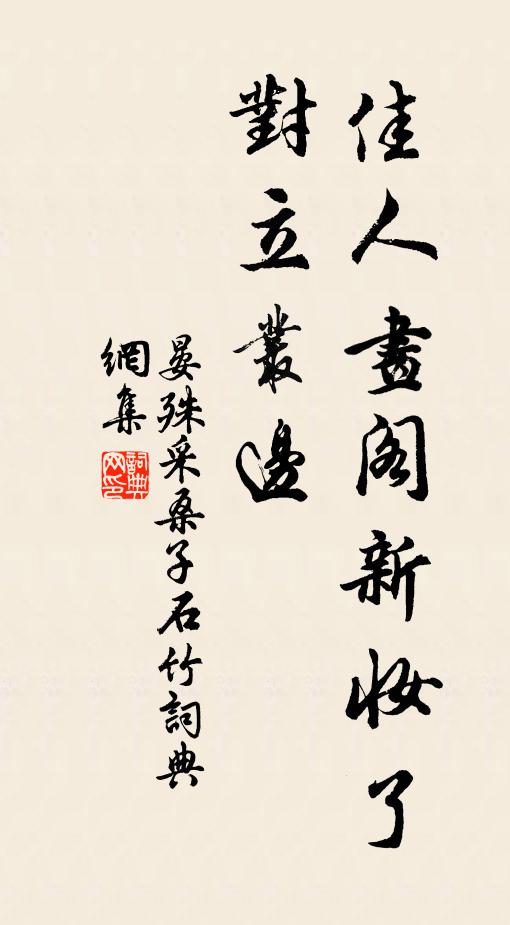 佳人畫阁新妆了
對立叢邊
晏殊采桑子石竹詞典
網集
詞典网印